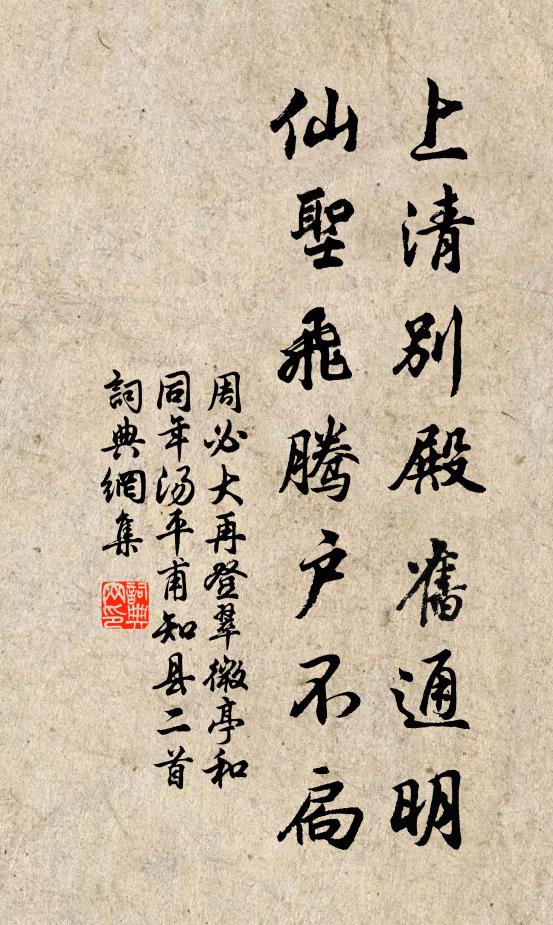 上清別殿舊通明
仙聖飛騰户不扃
周必大再登翠微亭和
同年湯平甫知县二首
詞典網集
詞典
网印